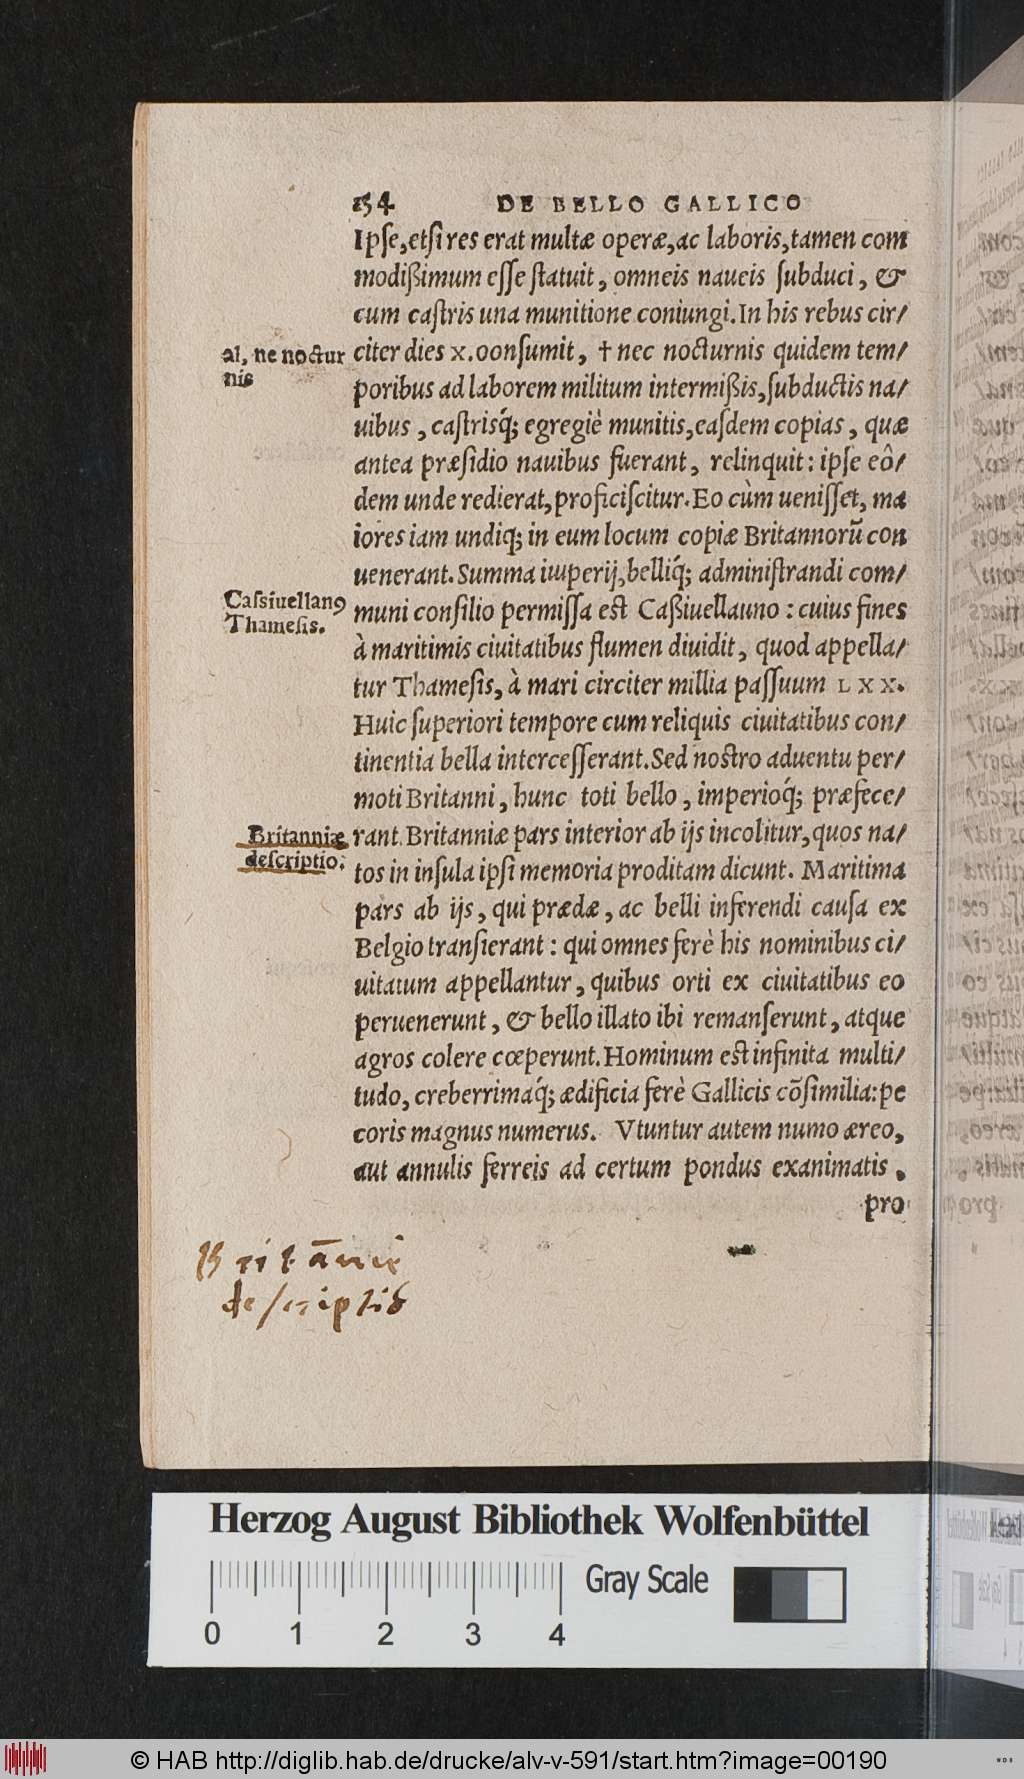 154 DE BELLO GALLICO
Ipſe, etſi res erat multæ operæ, ac laboris, tamen com
modißimum eſſe ſtatuit, omneis naueis ſubduci, &
cum caſtris una munitione coniungi. In his rebus cir/
al, ne noctur
nis
citer dies x. oonſumit, † nec nocturnis quidem tem/
poribus ad laborem militum intermißis, ſubductis na/
uibus, caſtrisq́; egregiè munitis, eaſdem copias, quæ
antea præſidio nauibus fuerant, relinquit: ipſe eô/
dem unde redierat, proficiſcitur. Eo cùm ueniſſet, ma
iores iam undiq; in eum locum copiæ Britannorũ con
uenerant. Summa imperij, belliq́; adminiſtrandi com/
Caſsiuellanꝰ
Thameſis.
muni conſilio permiſſa eſt Caßiuellauno: cuius fines
à maritimis ciuitatibus flumen diuidit, quod appella/
tur Thameſis, à mari circiter millia paſſuum LXX.
Huic ſuperiori tempore cum reliquis ciuitatibus con/
tinentia bella interceſſerant. Sed noſtro aduentu per/
moti Britanni, hunc toti bello, imperioq́; præfece/
Britanniæ
deſcriptio.
rant. Britanniæ pars interior ab ijs incolitur, quos na/
tos in inſula ipſi memoria proditam dicunt. Maritima
pars ab ijs, qui prædæ, ac belli inferendi cauſa ex
Belgio tranſierant: qui omnes ferè his nominibus ci/
uitatum appellantur, quibus orti ex ciuitatibus eo
peruenerunt, & bello illato ibi remanſerunt, atque
agros colere cœperunt. Hominum eſt infinita multi/
tudo, creberrimaq́; ædificia ferè Gallicis cõſimilia: pe
coris magnus numerus. Vtuntur autem numo æreo,
aut annulis ferreis ad certum pondus exanimatis.
pro
Britāniæ
deſcriptio
Herzog August Bibliothek Wolfenbüttel
Gray Scale
0 1 2 3 4
© HAB http://diglib.hab.de/drucke/alv-v-591/start.htm?image=00190